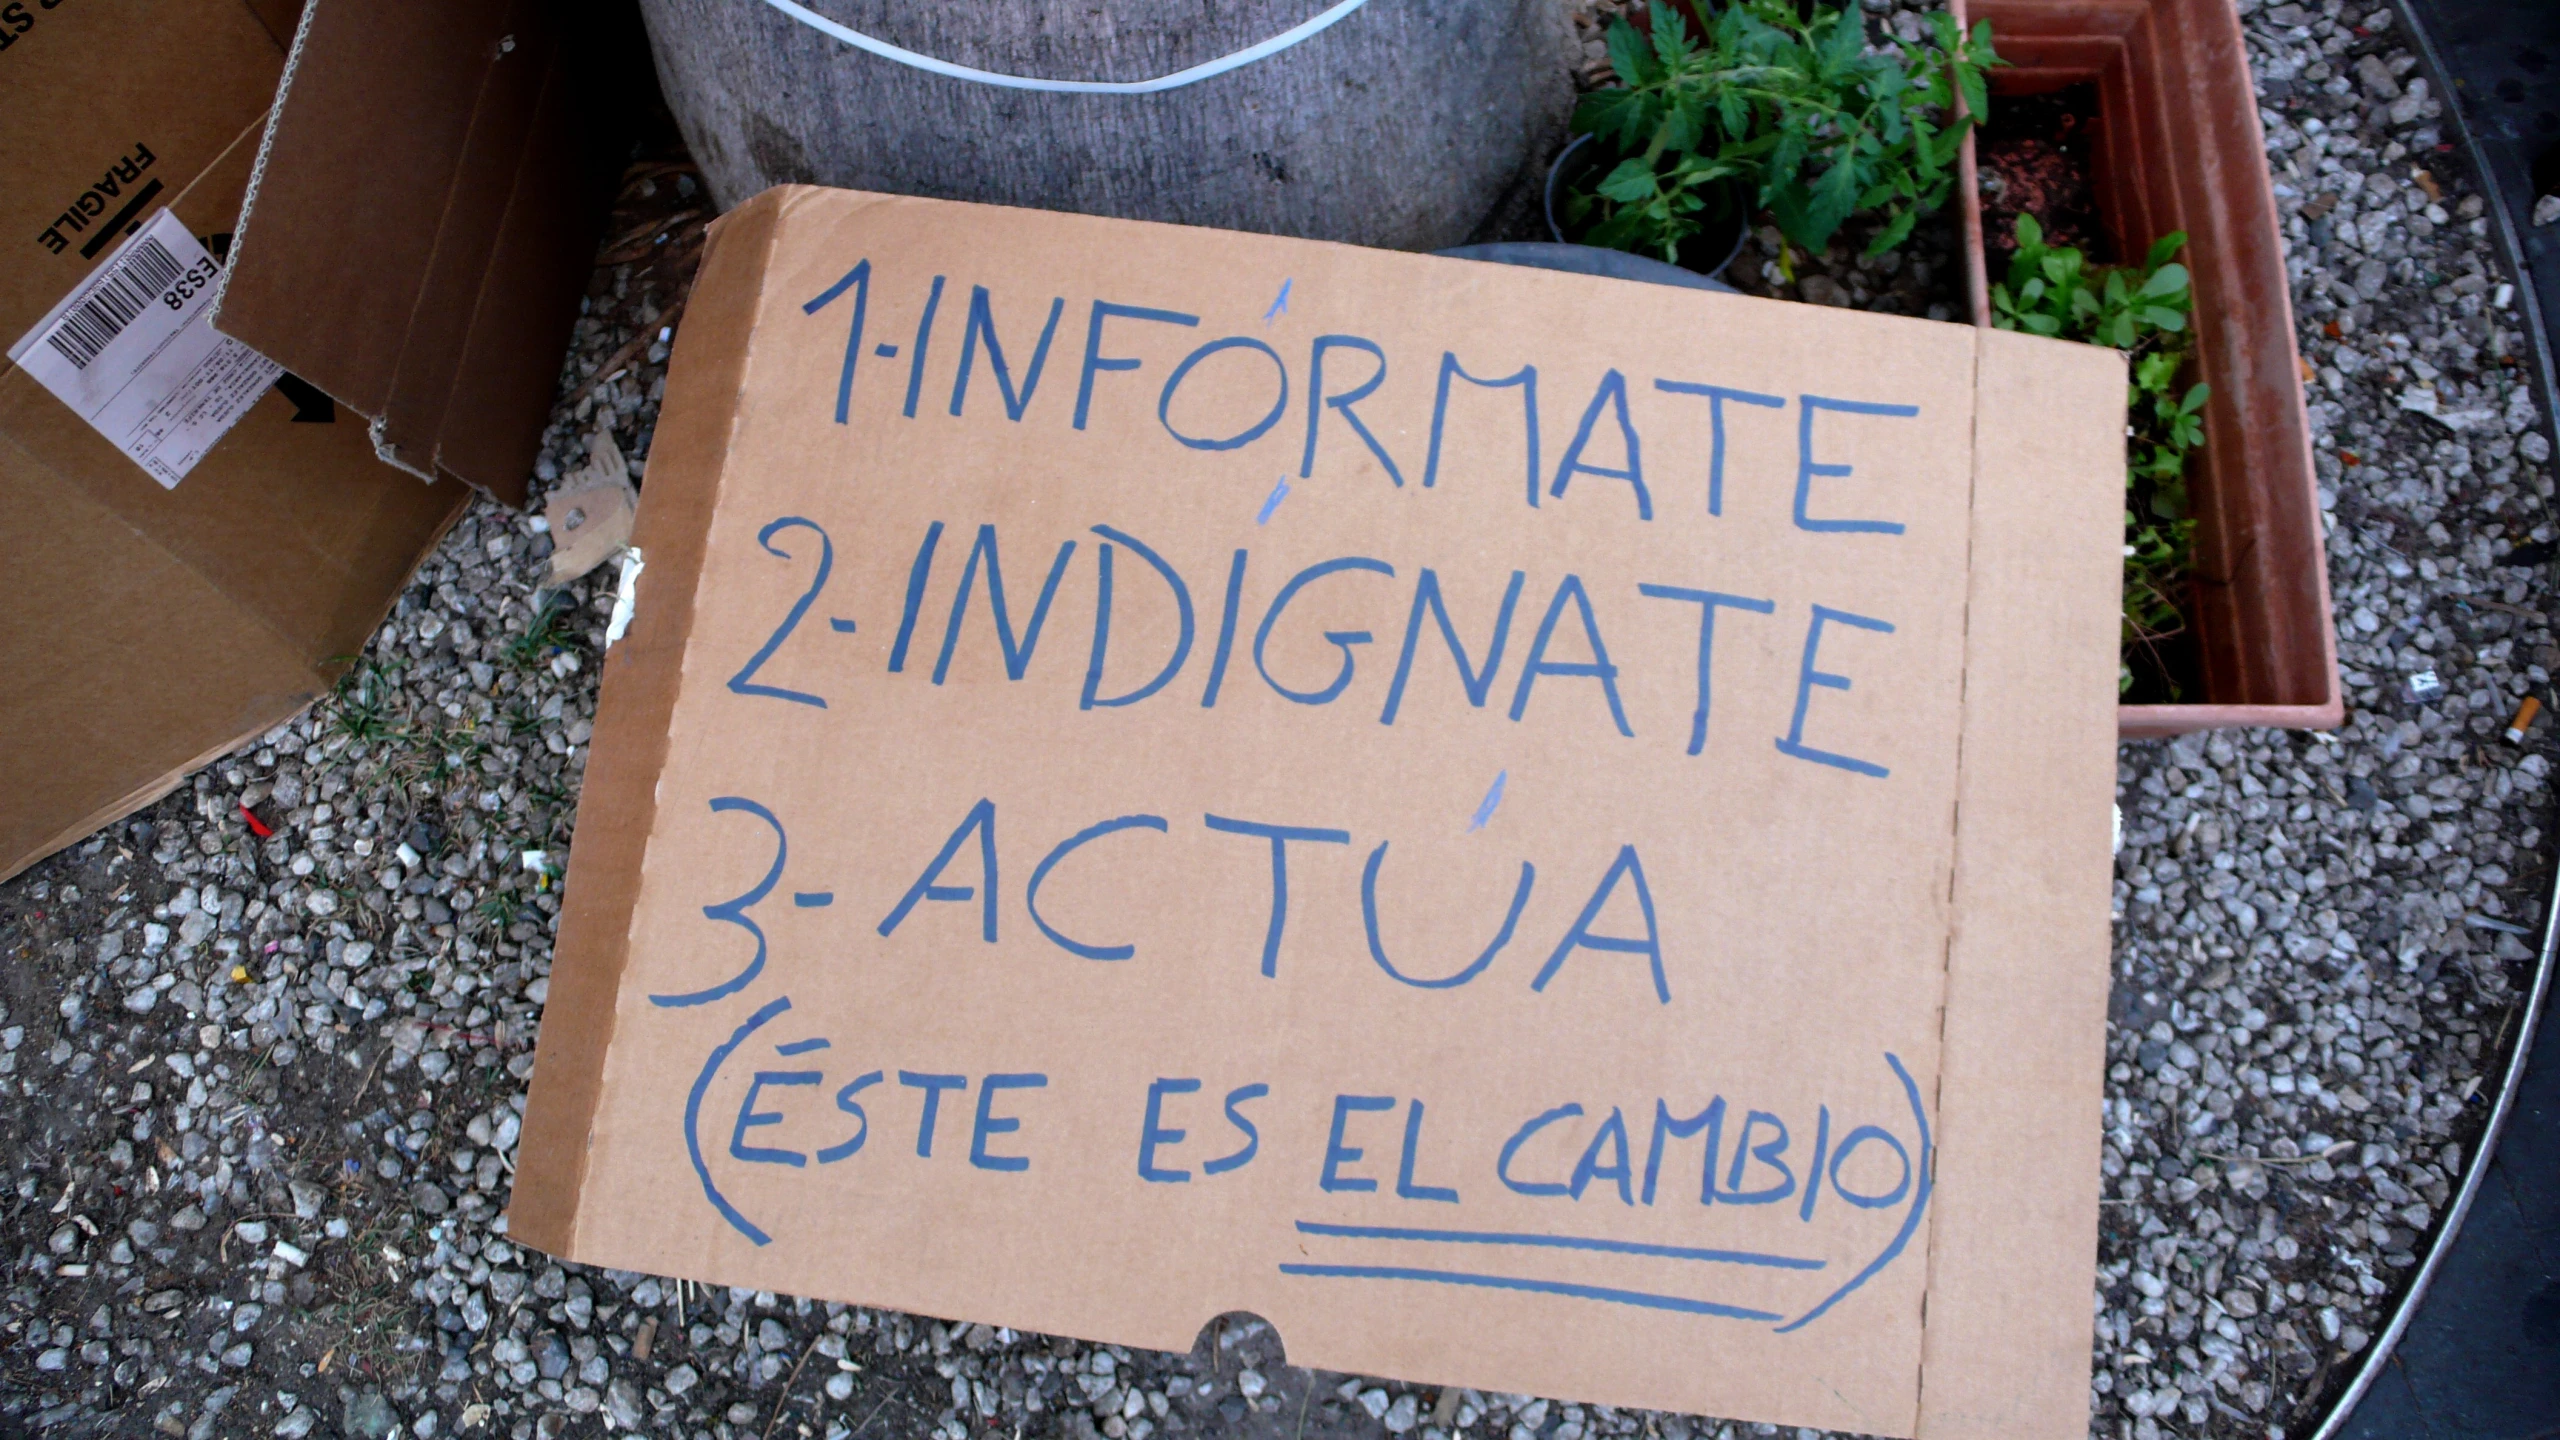 FRAGILE
ES38
1-INFÓRMATE
2-INDÍGNATE
3-ACTÚA
(ÉSTE ES EL CAMBIO)